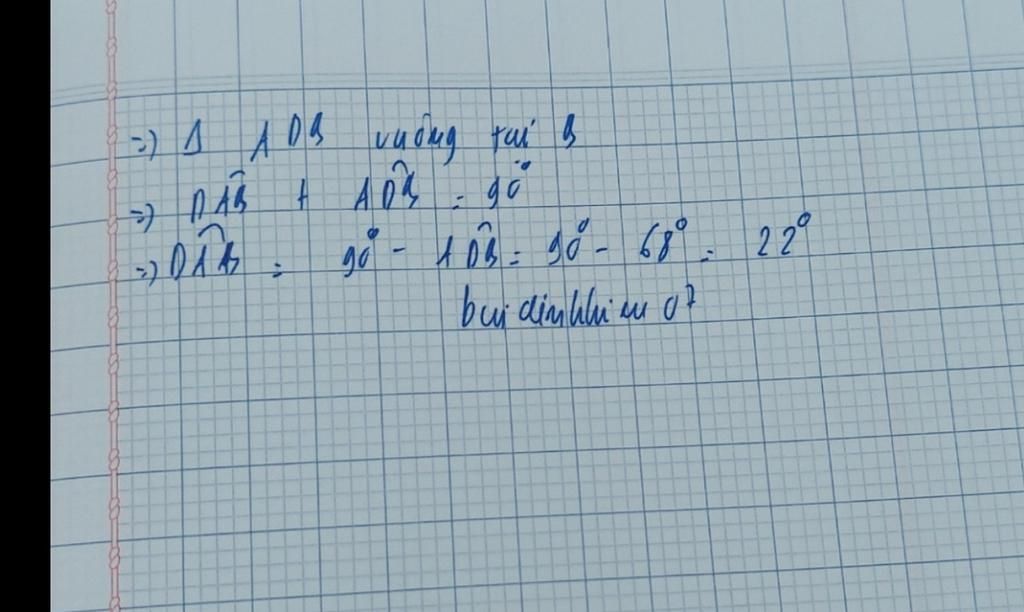 =) Δ ADB vuông tại B
=) DÂB + AD̂B = 90°
=) DÂB = 90° - AD̂B = 90° - 68° = 22°
bui dinh khiem 07